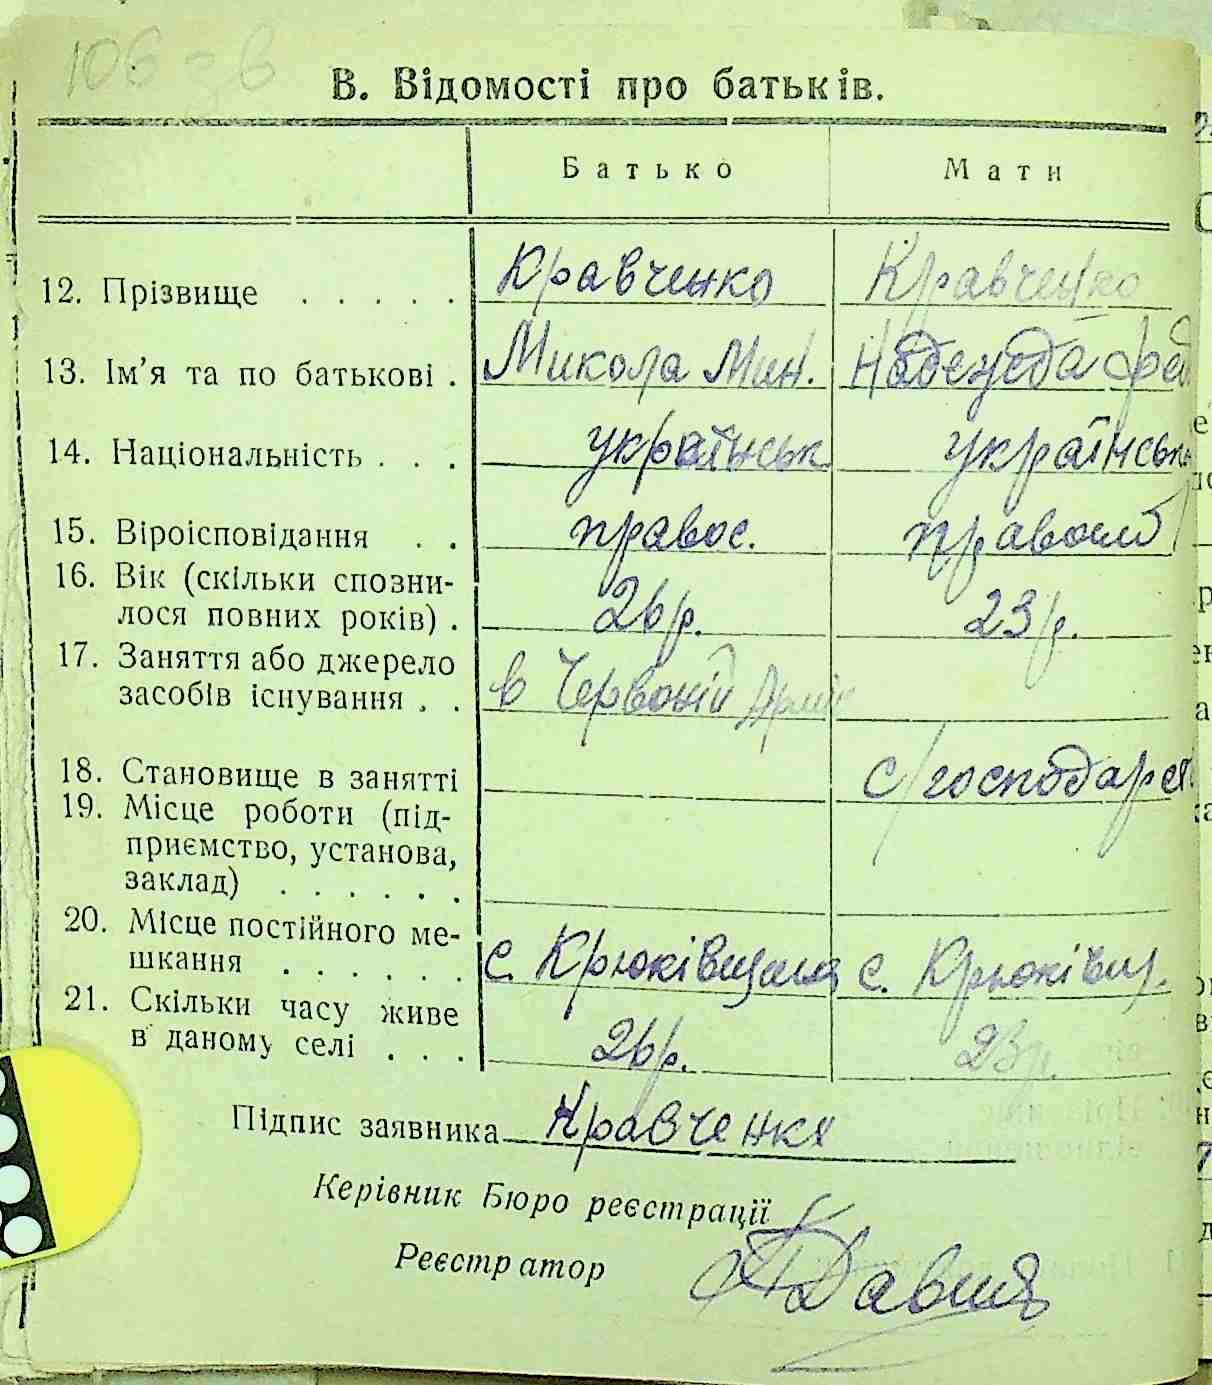 В. Відомості про батьків.
Батько Мати
12. Прізвище . . . . . Кравченко Кравченко
13. Ім'я та по батькові . Микола Мин. Надежда
14. Національність . . . українськ українськ
15. Віроісповідання . . правос. правосл
16. Вік (скільки спозни-
лося повних років) . 26 р. 23 р.
17. Заняття або джерело
засобів існування . . в Червоній Армії
18. Становище в занятті с/господарст
19. Місце роботи (під-
приємство, установа,
заклад) . . . . . .
20. Місце постійного ме-
шкання . . . . . . с. Крюківщина с. Крюківщ.
21. Скільки часу живе
в даному селі . . . 26 р. 23 р.
Підпис заявника Кравченко
Керівник Бюро реєстрації
Реєстратор